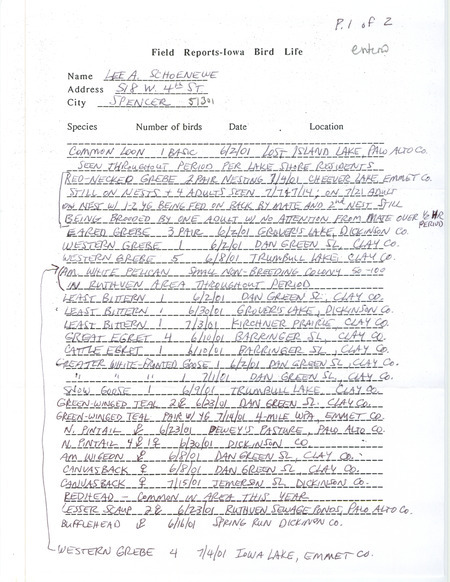 P. 1 of 2
Field Reports-Iowa Bird Life
Name LEE A. SCHOENEWE
Address 518 W. 4th ST.
City SPENCER 51301
Species Number of birds Date Location
COMMON LOON 1 BASIC 6/2/01 LOST ISLAND LAKE, PALO ALTO CO.
SEEN THROUGHOUT PERIOD PER LAKE SHORE RESIDENTS
RED-NECKED GREBE 2 PAIR NESTING 7/4/01 CHEEVER LAKE, EMMET CO.
STILL ON NESTS & 4 ADULTS SEEN 7/7 & 7/14; ON 7/21 ADULT
ON NEST W/ 1-2 YG BEING FED ON BACK BY MATE AND 2nd NEST STILL
BEING BROODED BY ONE ADULT W/ NO ATTENTION FROM MATE OVER ½ HR
PERIOD
EARED GREBE 3 PAIR 6/2/01 GROVER'S LAKE, DICKINSON CO.
WESTERN GREBE 1 6/2/01 DAN GREEN SL, CLAY CO.
WESTERN GREBE 5 6/8/01 TRUMBULL LAKE, CLAY CO.
AM. WHITE PELICAN SMALL NON-BREEDING COLONY 50-100
IN RUTHVEN AREA THROUGHOUT PERIOD
LEAST BITTERN 1 6/2/01 DAN GREEN SL, CLAY CO.
LEAST BITTERN 1 6/30/01 GROVER'S LAKE, DICKINSON CO.
LEAST BITTERN 1 7/3/01 KIRCHNER PRAIRIE, CLAY CO.
GREAT EGRET 4 6/10/01 BARRINGER SL, CLAY CO.
CATTLE EGRET 1 6/10/01 BARRINGER SL, CLAY CO.
GREATER WHITE-FRONTED GOOSE 1 6/2/01 DAN GREEN SL, CLAY CO.
" " 1 7/1/01 DAN GREEN SL, CLAY CO.
SNOW GOOSE 1 6/9/01 TRUMBULL LAKE, CLAY CO.
GREEN-WINGED TEAL 2♂ 6/23/01 DAN GREEN SL, CLAY CO.
GREEN-WINGED TEAL PAIR W/ YG 7/4/01 4-MILE WPA, EMMET CO.
N. PINTAIL ♂ 6/23/01 DEWEY'S PASTURE, PALO ALTO CO.
N. PINTAIL 4♂ 1♀ 6/30/01 DICKINSON CO
AM. WIGEON ♂ 6/8/01 DAN GREEN SL, CLAY CO.
CANVASBACK ♀ 6/8/01 DAN GREEN SL, CLAY CO.
CANVASBACK ♀ 7/15/01 JEMERSON SL, DICKINSON CO.
REDHEAD - COMMON IN AREA THIS YEAR
LESSER SCAUP 2♂ 6/23/01 RUTHVEN SEWAGE PONDS, PALO ALTO CO.
BUFFLEHEAD ♂ 6/16/01 SPRING RUN DICKINSON CO.
WESTERN GREBE 4 7/4/01 IOWA LAKE, EMMET CO.